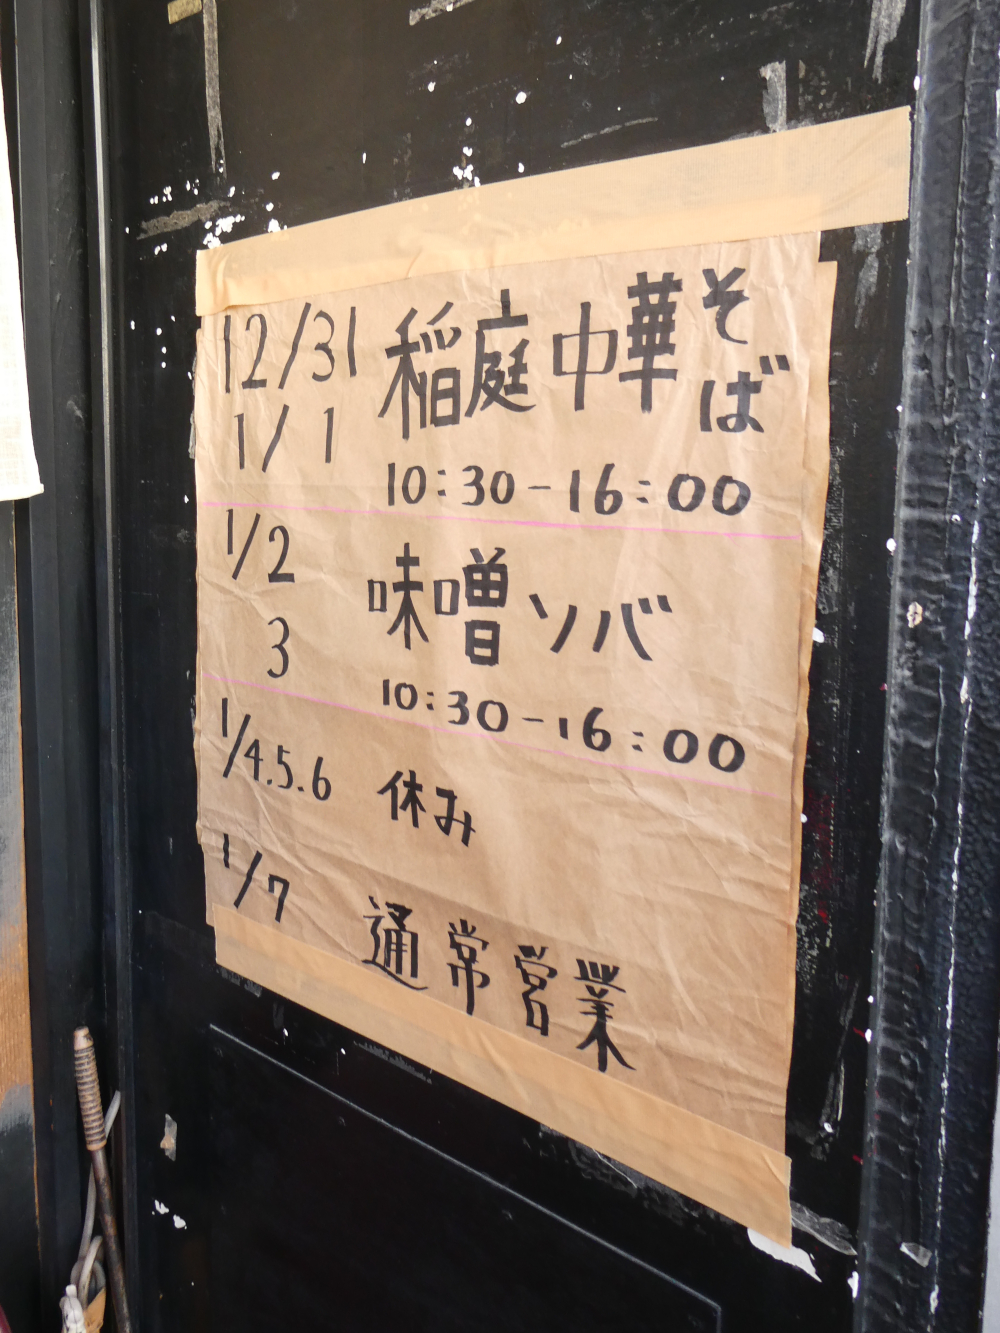 12/31 稲庭中華そば
1/1
10:30-16:00
1/2 味噌ソバ
3
10:30-16:00
1/4.5.6 休み
1/7 通常営業